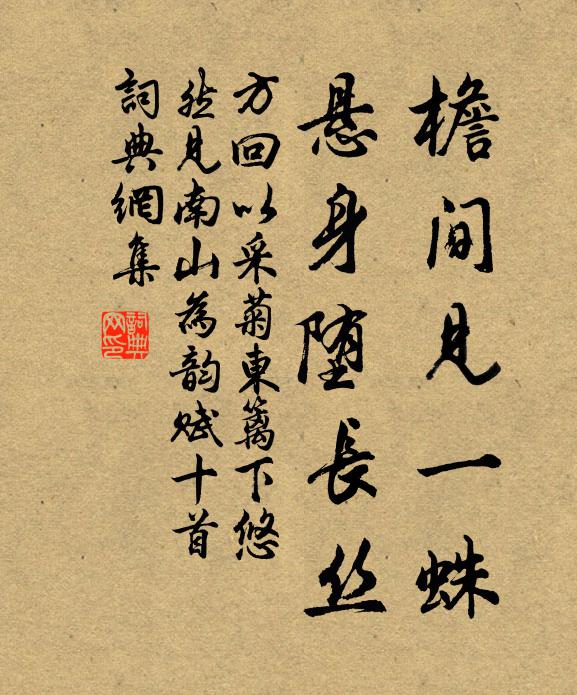 檐间見一蛛
悬身堕長丝
方回以采菊東篱下悠
然見南山為韵赋十首
詞典網集
詞典
网印